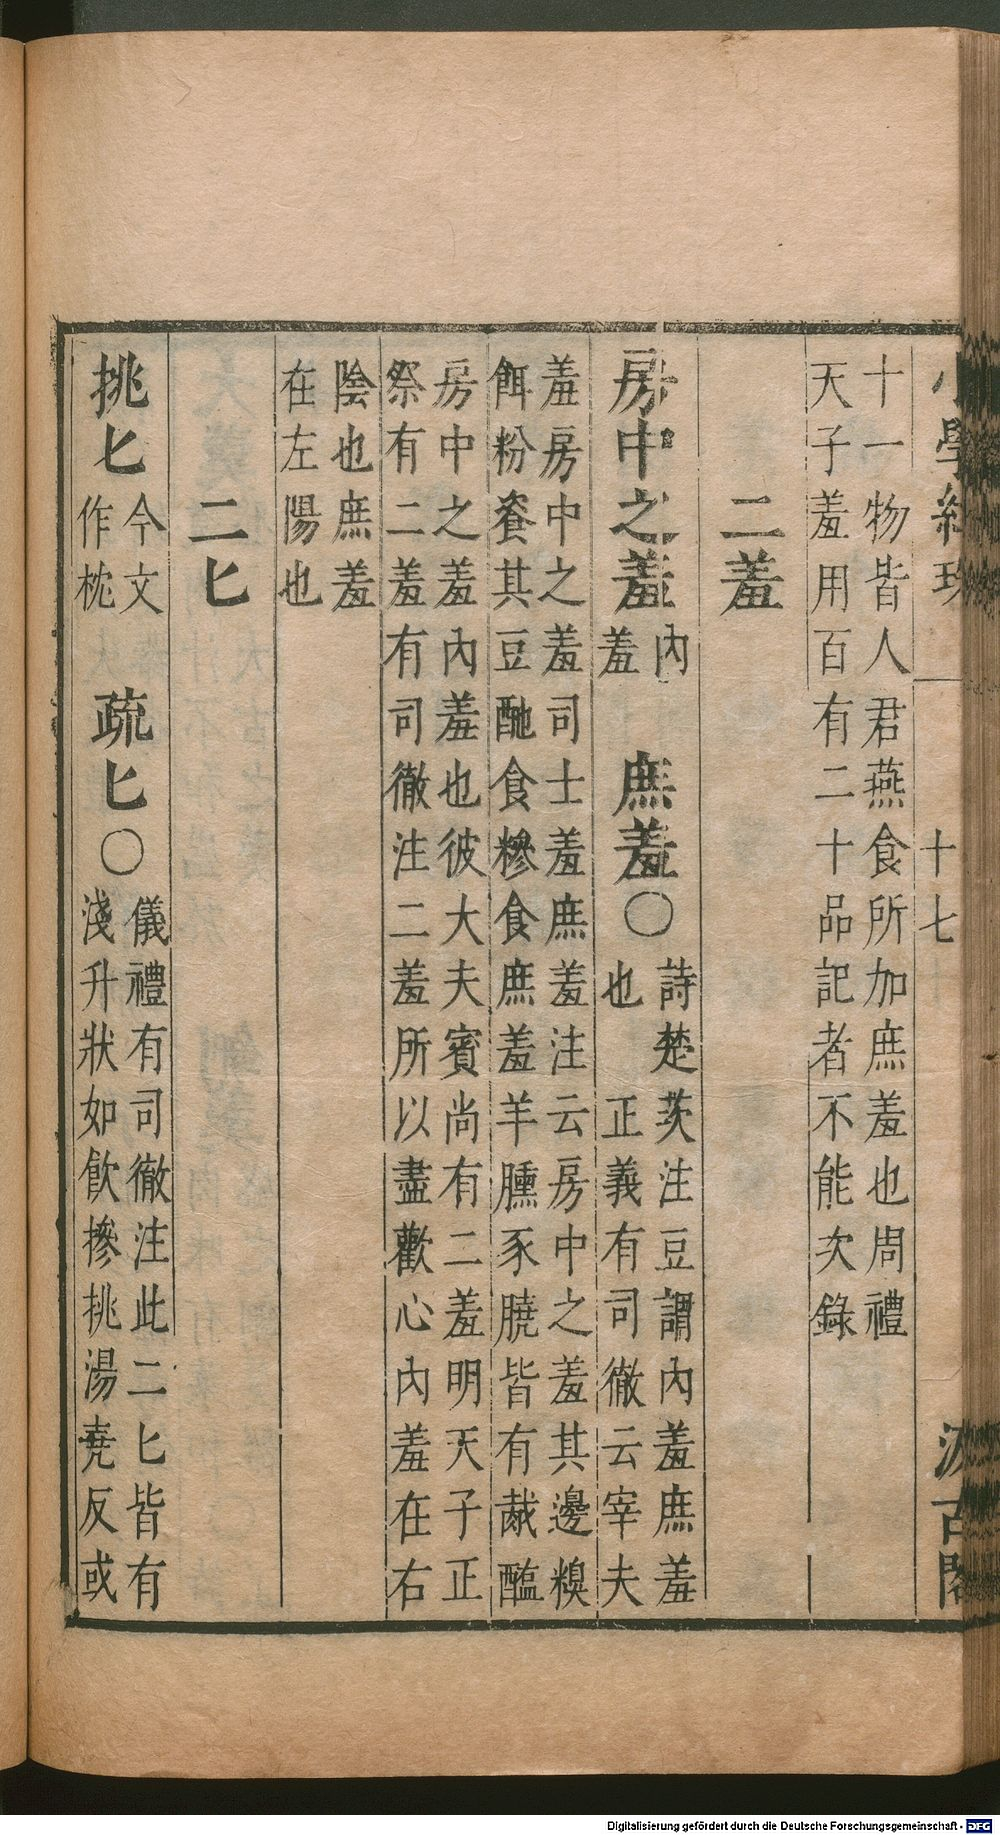 小學紺珠 十七 汲古閣
十一物皆人君燕食所加庶羞也周禮
天子羞用百有二十品記者不能次錄
二羞
房中之羞
內
羞
庶羞〇
詩楚茨注豆謂內羞庶羞
也 正義有司徹云宰夫
羞房中之羞司士羞庶羞注云房中之羞其籩糗
餌粉餈其豆酏食糝食庶羞羊臐豕膮皆有胾醢
房中之羞內羞也彼大夫賓尚有二羞明天子正
祭有二羞有司徹注二羞所以盡歡心內羞在右
陰也庶羞
在左陽也
二匕
挑匕
今文
作枕
疏匕〇
儀禮有司徹注此二匕皆有
淺升狀如飲摻挑湯堯反或
Digitalisierung gefördert durch die Deutsche Forschungsgemeinschaft - DFG